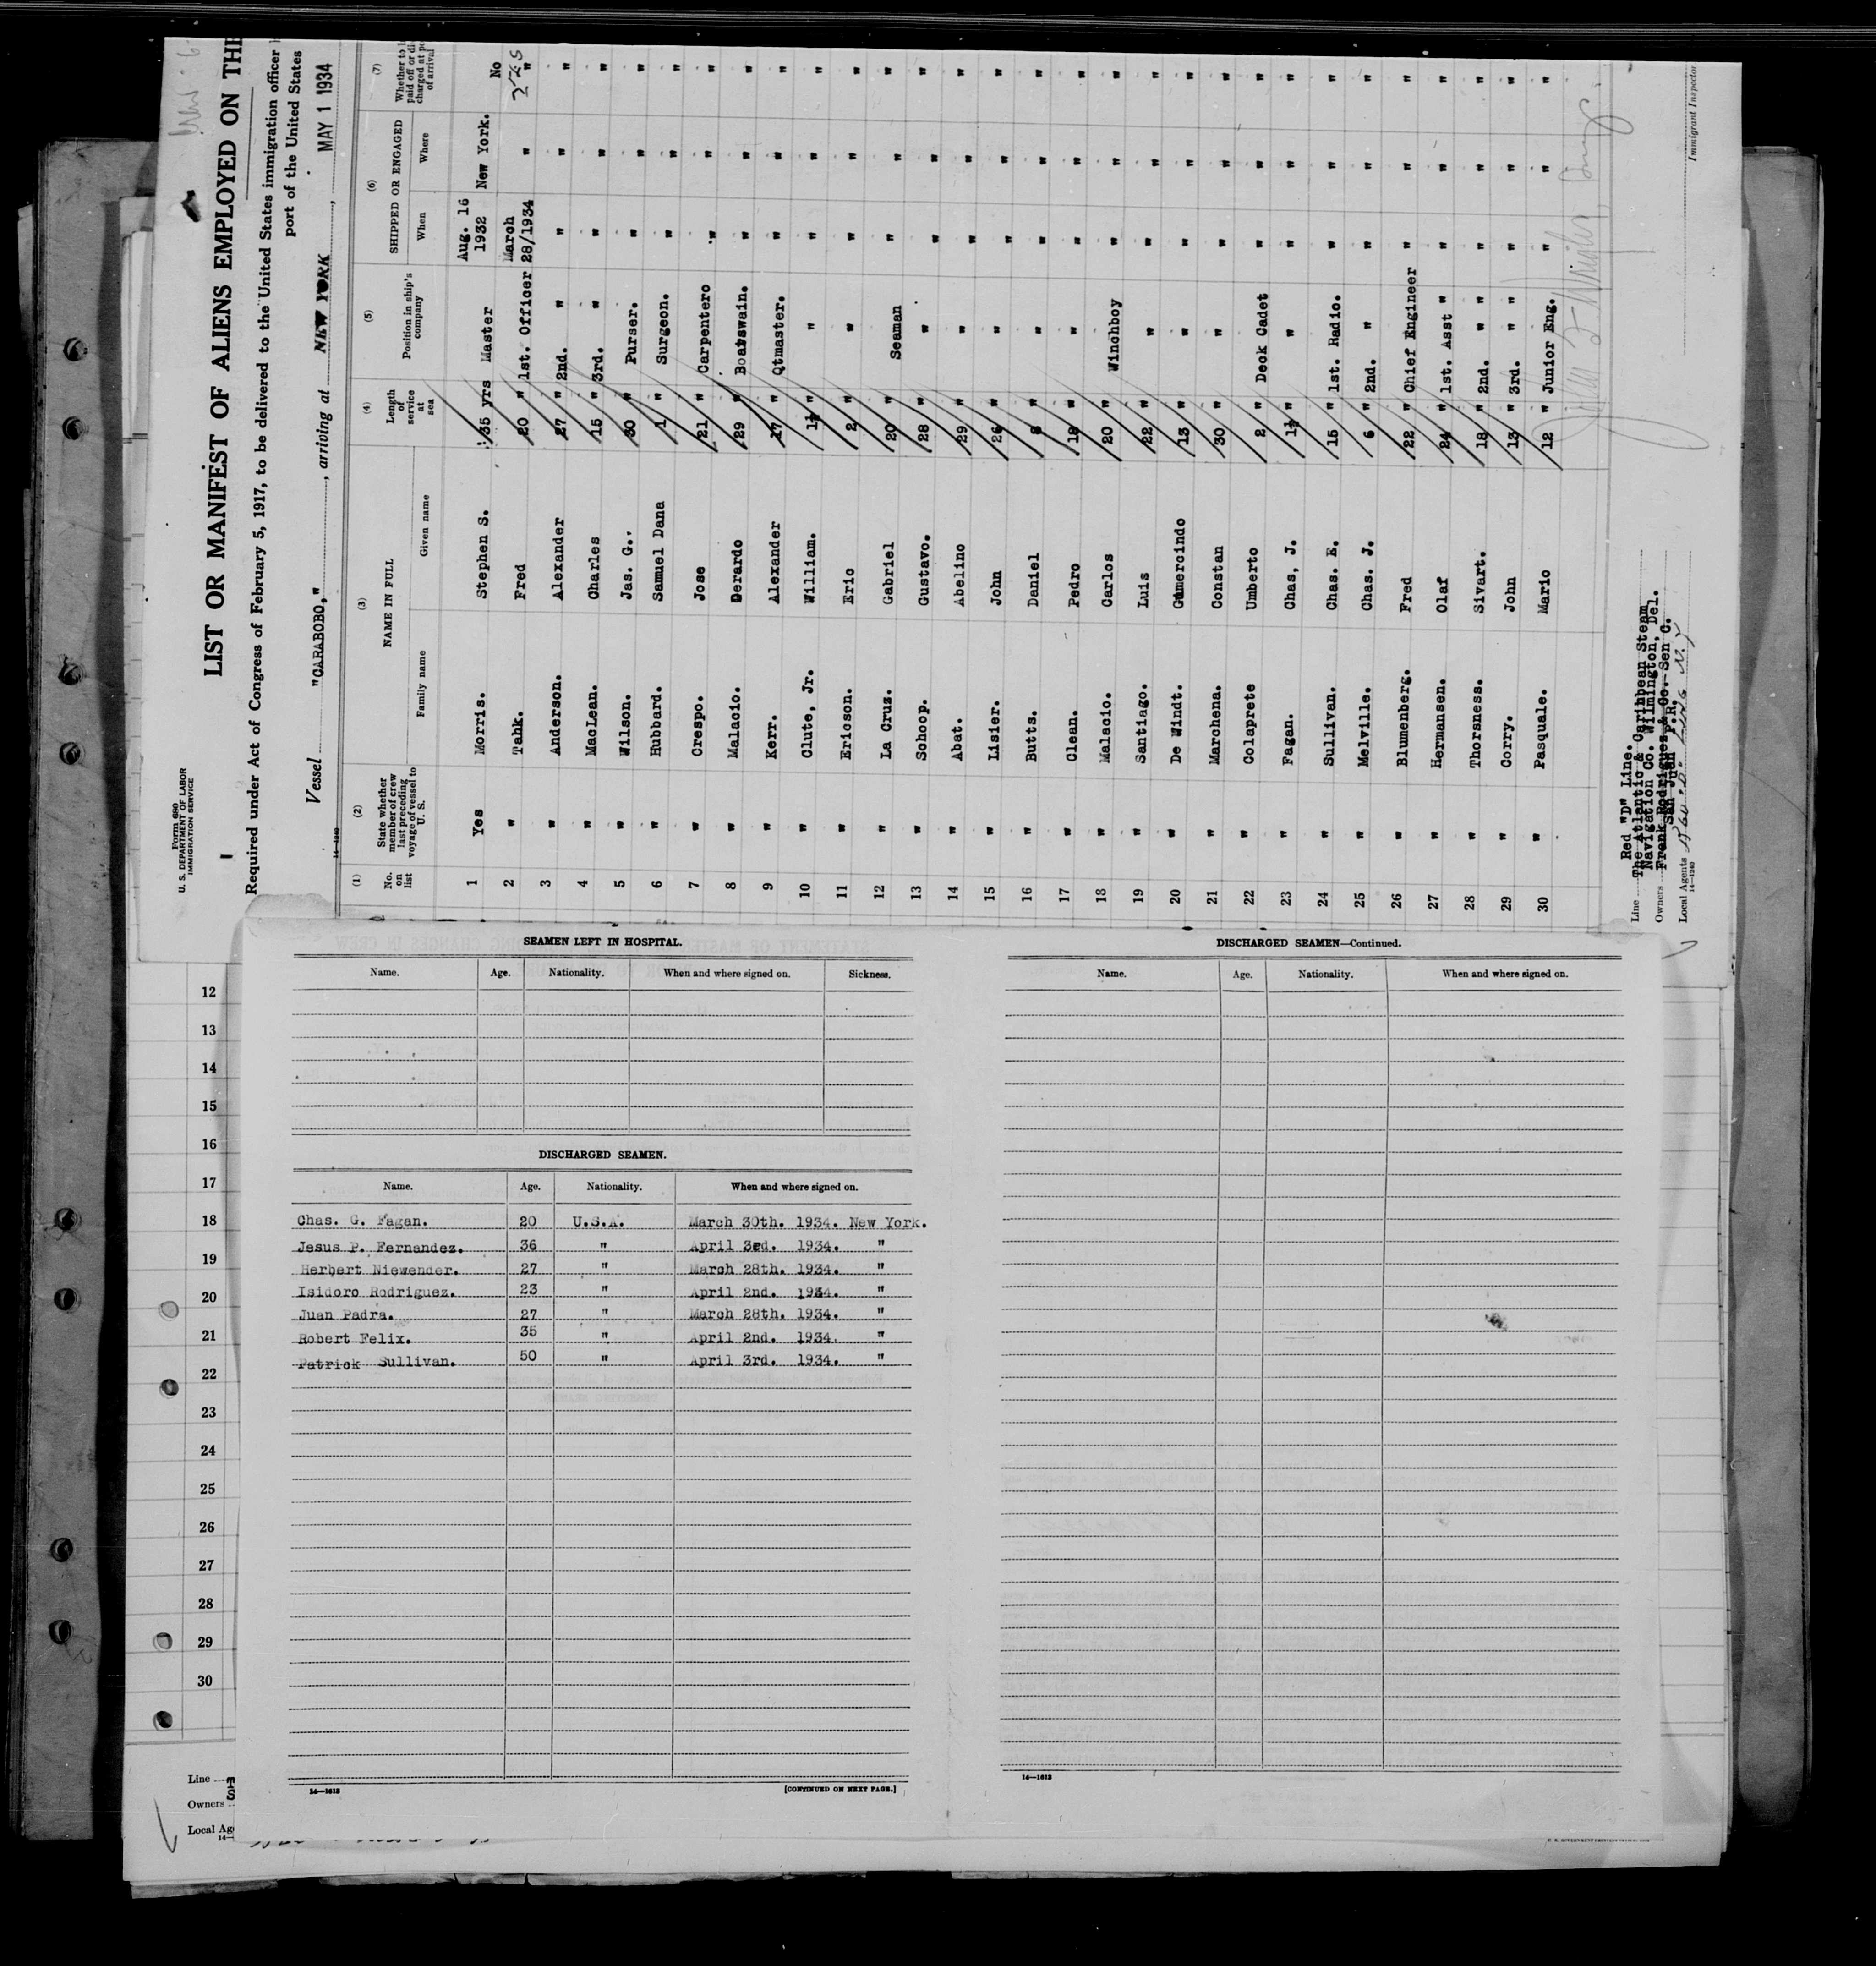 Form 680
U. S. DEPARTMENT OF LABOR
IMMIGRATION SERVICE
LIST OR MANIFEST OF ALIENS EMPLOYED ON THE
Required under Act of Congress of February 5, 1917, to be delivered to the United States immigration officer
port of the United States
Vessel "CARABOBO," , arriving at NEW YORK , MAY 1 1934
14—1240
(1) (2) (3) (4) (5) (6) (7)
No. on list
State whether member of crew last preceding voyage of vessel to U. S.
NAME IN FULL
Family name Given name
Length of service at sea
Position in ship's company
SHIPPED OR ENGAGED
When Where
of arrival
1 Yes Morris. Stephen S. 35 yrs Master Aug. 16 1932 New York. No
2 " Tahk. Fred 20 " 1st. Officer March 28/1934 " "
3 " Anderson. Alexander 27 " 2nd. " " " "
4 " MacLean. Charles 15 " 3rd. " " " "
5 " Wilson. Jas. G.. 30 " Purser. " " "
6 " Hubbard. Samuel Dana 1 " Surgeon. " " "
7 " Crespo. Jose 21 " Carpentero " " "
8 " Malacio. Derardo 29 " Boatswain. " " "
9 " Kerr. Alexander 17 " Qtmaster. " " "
10 " Clute, Jr. William. 1½ " " " " "
11 " Ericson. Eric 2 " " " " "
12 " La Cruz. Gabriel 20 " Seaman " " "
13 " Schoop. Gustavo. 28 " " " " "
14 " Abat. Abelino 29 " " " " "
15 " Lisier. John 26 " " " " "
16 " Butts. Daniel 8 " " " " "
17 " Clean. Pedro 18 " " " " "
18 " Malacio. Carlos 20 " Winchboy " " "
19 " Santiago. Luis 22 " " " " "
20 " De Windt. Gumercindo 13 " " " " "
21 " Marchena. Constan 30 " " " " "
22 " Colaprete Umberto 2 " Deck Cadet " " "
23 " Fagan. Chas, J. 1½ " " " " "
24 " Sullivan. Chas. E. 15 " 1st. Radio. " " "
25 " Melville. Chas. J. 6 " 2nd. " " " "
26 " Blumenberg. Fred 22 " Chief Engineer " " "
27 " Hermansen. Olaf 24 " 1st. Asst " " " "
28 " Thorsness. Sivart. 18 " 2nd. " " " " "
29 " Corry. John 13 " 3rd. " " " " "
30 " Pasquale. Mario 12 " Junior Eng. " " "
Line Red "D" Line.
The Atlantic & Caribbean Steam
Owners Navigation Co. Wilmington, Del.
Frank Rodrigues & Co. Sen C.
San Juan P.R.
Local Agents
14—1240
Immigrant Inspector
SEAMEN LEFT IN HOSPITAL.
Name. Age. Nationality. When and where signed on. Sickness.
DISCHARGED SEAMEN.
Name. Age. Nationality. When and where signed on.
Chas. G. Fagan. 20 U.S.A. March 30th. 1934. New York.
Jesus P. Fernandez. 36 " April 3rd. 1934. "
Herbert Niewender. 27 " March 28th. 1934. "
Isidoro Rodriguez. 23 " April 2nd. 1934. "
Juan Padra. 27 " March 28th. 1934. "
Robert Felix. 35 " April 2nd. 1934. "
Patrick Sullivan. 50 " April 3rd. 1934. "
14—1613
[CONTINUED ON NEXT PAGE.]
DISCHARGED SEAMEN—Continued.
Name. Age. Nationality. When and where signed on.
14—1613
12
13
14
15
16
17
18
19
20
21
22
23
24
25
26
27
28
29
30
Line
Owners
Local Ag
14—